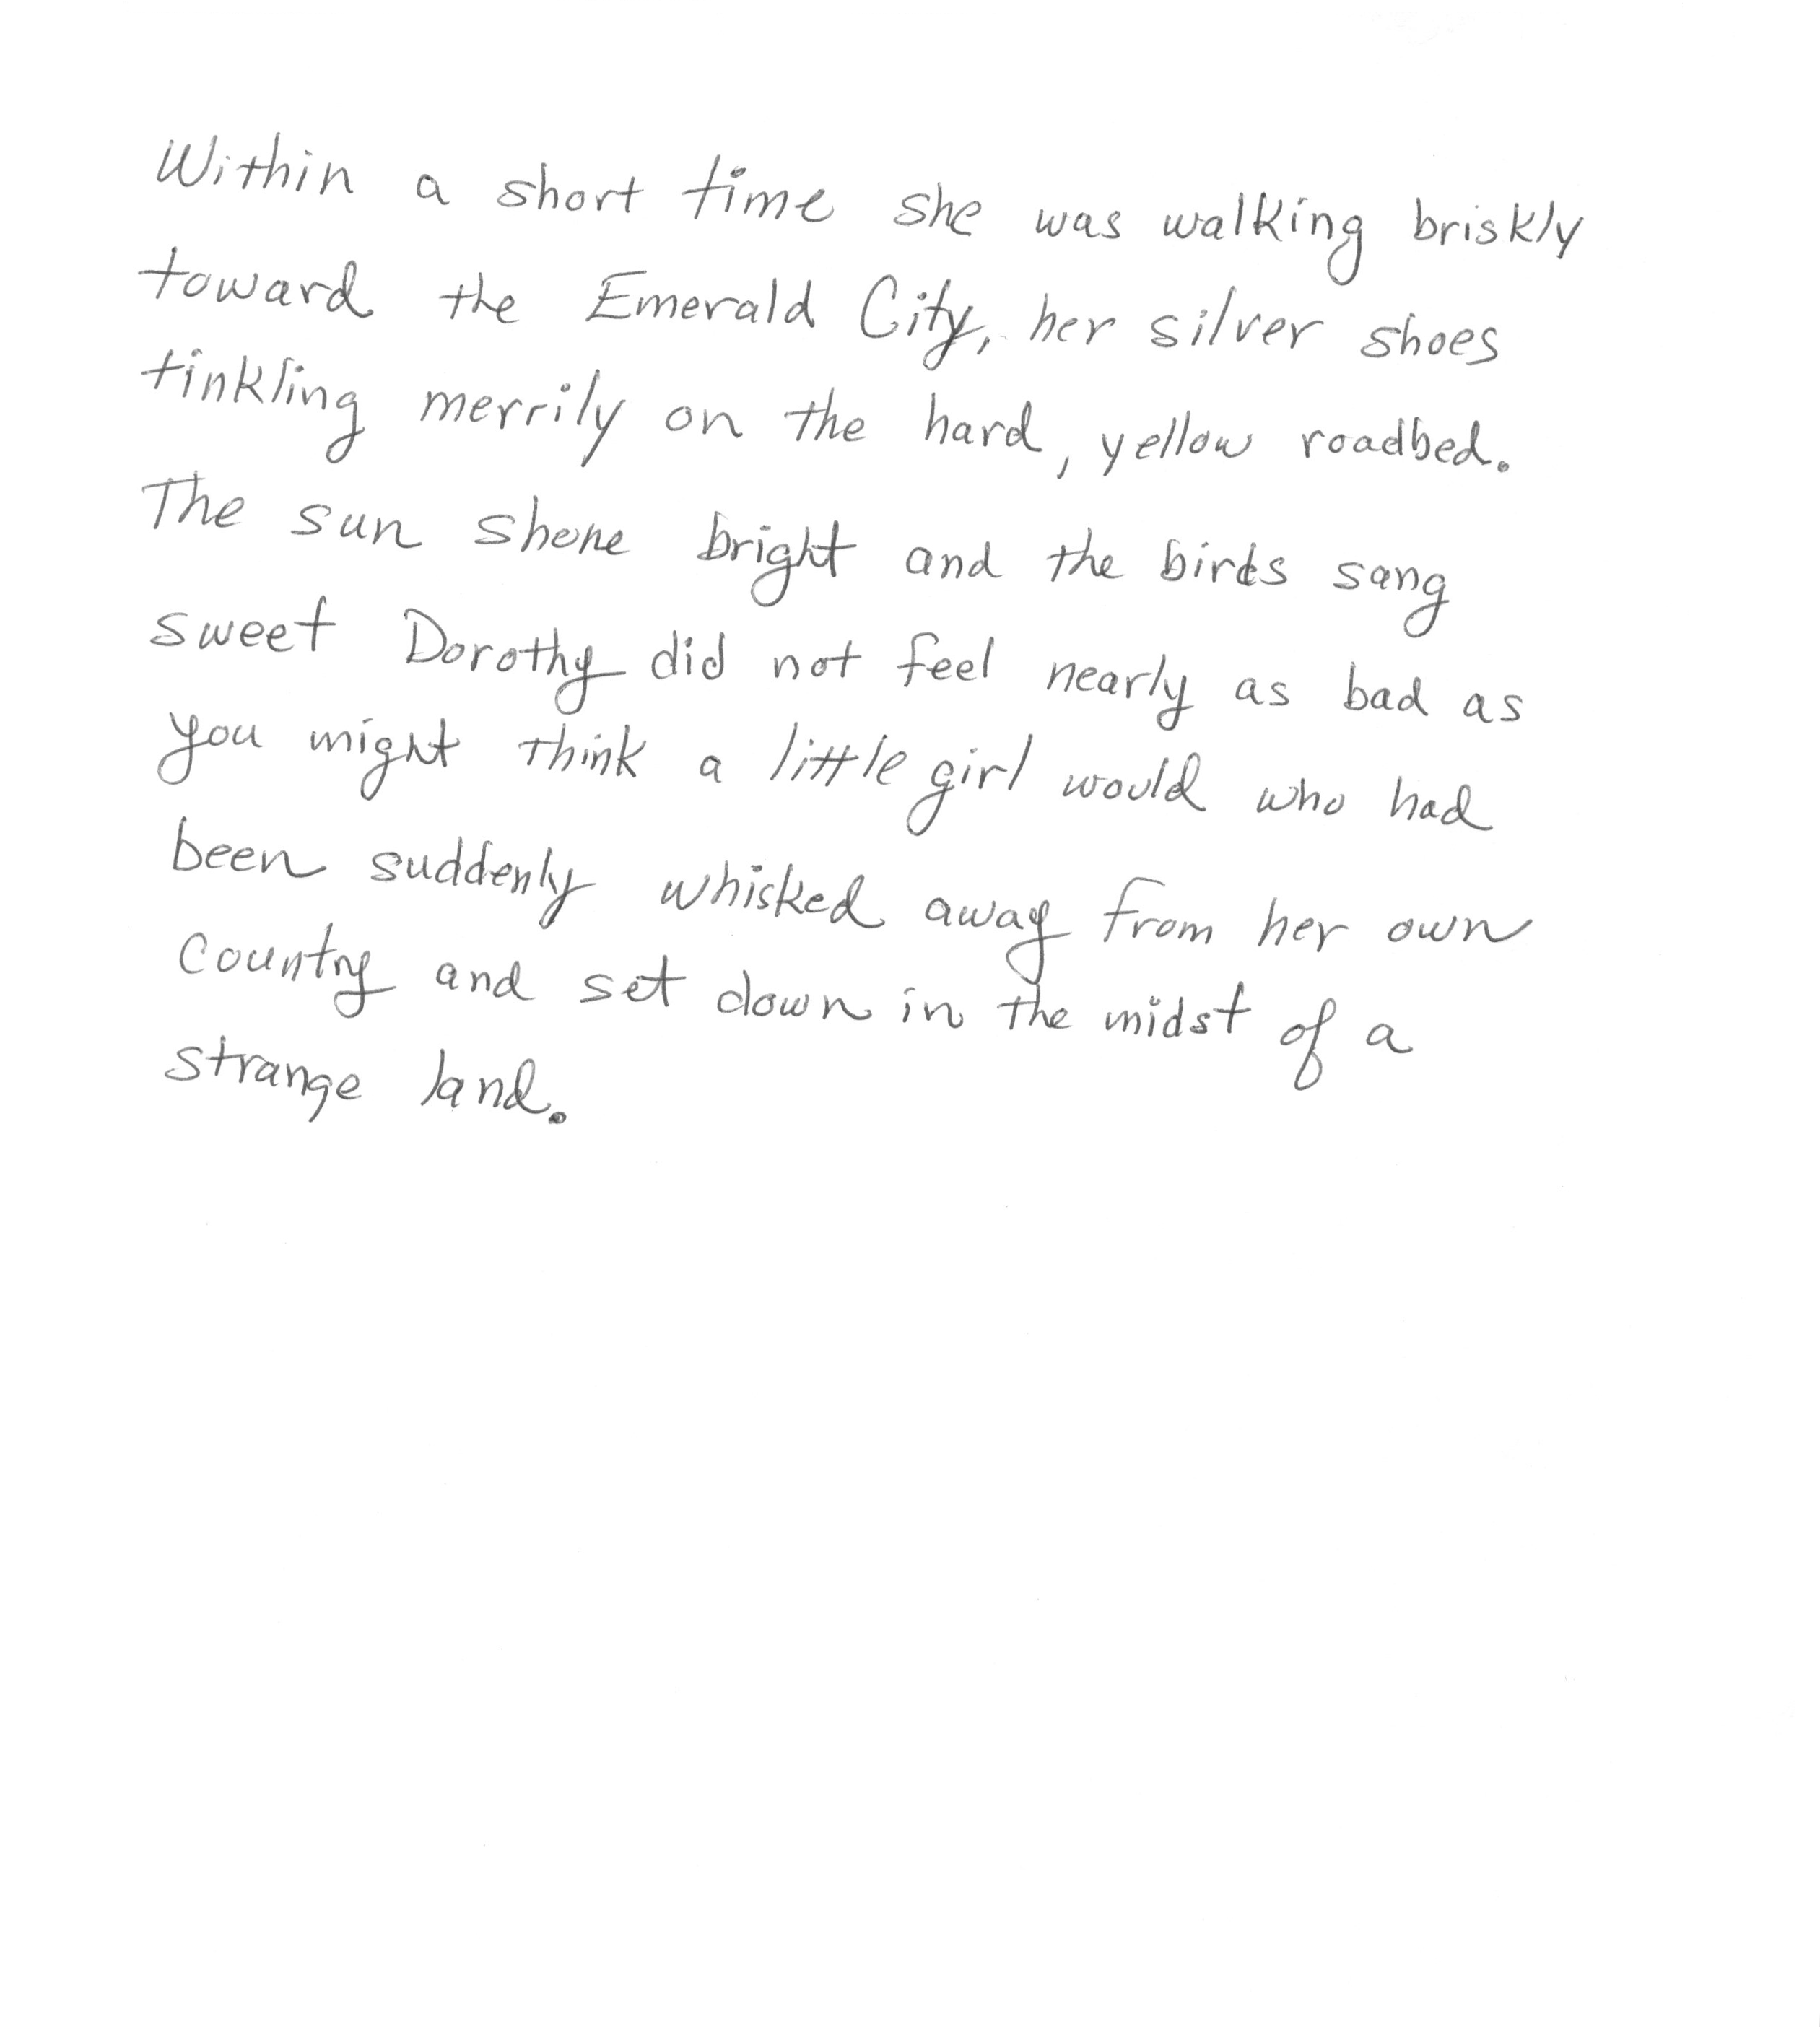 Within a short time she was walking briskly
toward the Emerald City, her silver shoes
tinkling merrily on the hard, yellow roadbed.
The sun shone bright and the birds sang
sweet Dorothy did not feel nearly as bad as
you might think a little girl would who had
been suddenly whisked away from her own
country and set down in the midst of a
strange land.